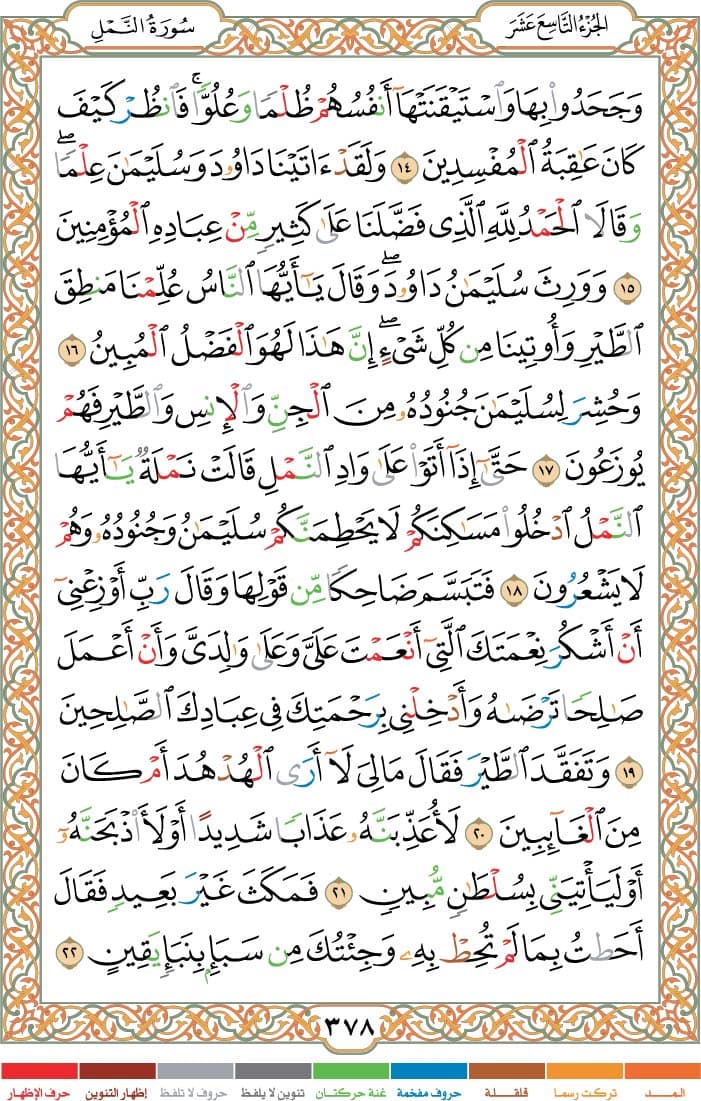 الجزء التاسع عشر
سورة النمل
وَجَحَدُوا۟ بِهَا وَٱسْتَيْقَنَتْهَآ أَنفُسُهُمْ ظُلْمًا وَعُلُوًّا ۚ فَٱنظُرْ كَيْفَ
كَانَ عَـٰقِبَةُ ٱلْمُفْسِدِينَ ١٤ وَلَقَدْ ءَاتَيْنَا دَاوُۥدَ وَسُلَيْمَـٰنَ عِلْمًا ۖ
وَقَالَا ٱلْحَمْدُ لِلَّهِ ٱلَّذِى فَضَّلَنَا عَلَىٰ كَثِيرٍ مِّنْ عِبَادِهِ ٱلْمُؤْمِنِينَ
١٥ وَوَرِثَ سُلَيْمَـٰنُ دَاوُۥدَ ۖ وَقَالَ يَـٰٓأَيُّهَا ٱلنَّاسُ عُلِّمْنَا مَنطِقَ
ٱلطَّيْرِ وَأُوتِينَا مِن كُلِّ شَىْءٍ ۖ إِنَّ هَـٰذَا لَهُوَ ٱلْفَضْلُ ٱلْمُبِينُ ١٦
وَحُشِرَ لِسُلَيْمَـٰنَ جُنُودُهُۥ مِنَ ٱلْجِنِّ وَٱلْإِنسِ وَٱلطَّيْرِ فَهُمْ
يُوزَعُونَ ١٧ حَتَّىٰٓ إِذَآ أَتَوْا۟ عَلَىٰ وَادِ ٱلنَّمْلِ قَالَتْ نَمْلَةٌ يَـٰٓأَيُّهَا
ٱلنَّمْلُ ٱدْخُلُوا۟ مَسَـٰكِنَكُمْ لَا يَحْطِمَنَّكُمْ سُلَيْمَـٰنُ وَجُنُودُهُۥ وَهُمْ
لَا يَشْعُرُونَ ١٨ فَتَبَسَّمَ ضَاحِكًا مِّن قَوْلِهَا وَقَالَ رَبِّ أَوْزِعْنِىٓ
أَنْ أَشْكُرَ نِعْمَتَكَ ٱلَّتِىٓ أَنْعَمْتَ عَلَىَّ وَعَلَىٰ وَٰلِدَىَّ وَأَنْ أَعْمَلَ
صَـٰلِحًا تَرْضَىٰهُ وَأَدْخِلْنِى بِرَحْمَتِكَ فِى عِبَادِكَ ٱلصَّـٰلِحِينَ
١٩ وَتَفَقَّدَ ٱلطَّيْرَ فَقَالَ مَا لِىَ لَآ أَرَى ٱلْهُدْهُدَ أَمْ كَانَ
مِنَ ٱلْغَآئِبِينَ ٢٠ لَأُعَذِّبَنَّهُۥ عَذَابًا شَدِيدًا أَوْ لَأَا۟ذْبَحَنَّهُۥٓ
أَوْ لَيَأْتِيَنِّى بِسُلْطَـٰنٍ مُّبِينٍ ٢١ فَمَكَثَ غَيْرَ بَعِيدٍ فَقَالَ
أَحَطتُ بِمَا لَمْ تُحِطْ بِهِۦ وَجِئْتُكَ مِن سَبَإٍۭ بِنَبَإٍ يَقِينٍ ٢٢
٣٧٨
المـــد
تركت رسما
قلقلة
حروف مفخمة
غنة حركتان
تنوين لا يلفظ
حروف لا تلفظ
إظهار التنوين
حرف الإظهار